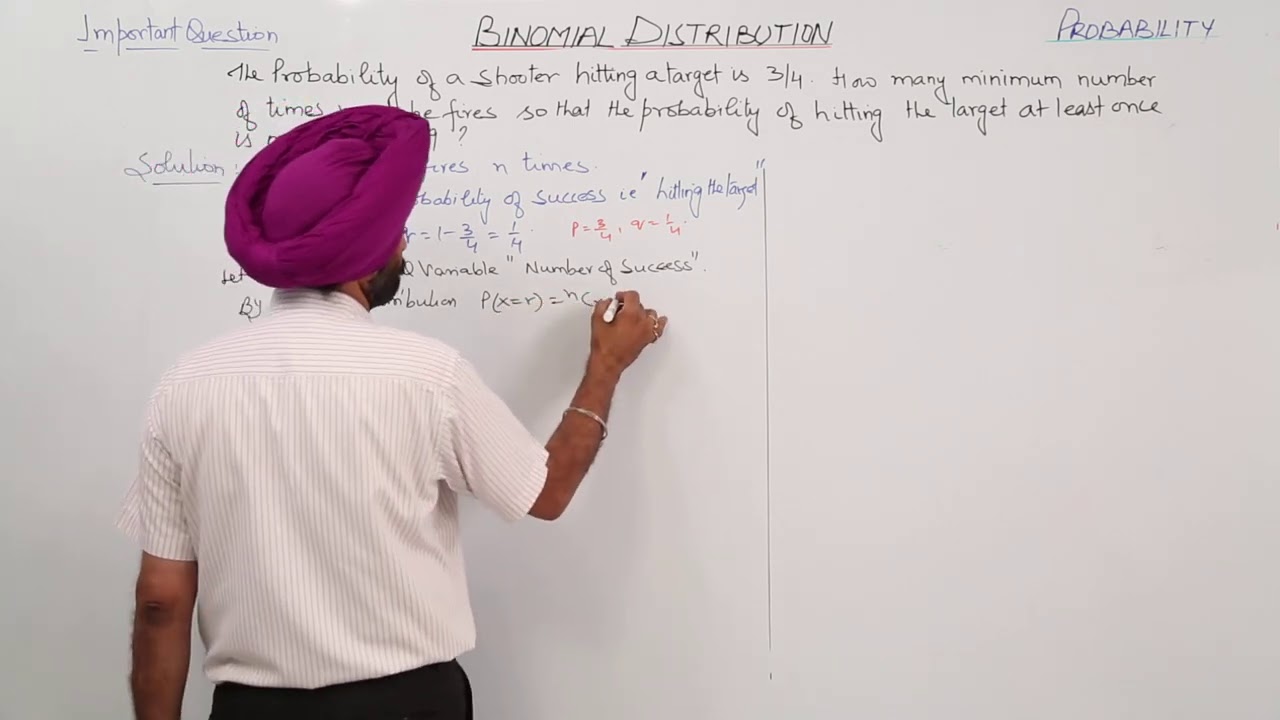 Important Question
BINOMIAL DISTRIBUTION
PROBABILITY
The Probability of a shooter hitting a target is 3/4. How many minimum number
of times he fires so that the probability of hitting the target at least once
is 9 ?
Solution : fires n times.
probability of success ie "hitting the target"
q = 1 - 3/4 = 1/4 . p = 3/4 , q = 1/4 .
Let Variable "Number of Success".
By P(x=r) = n C